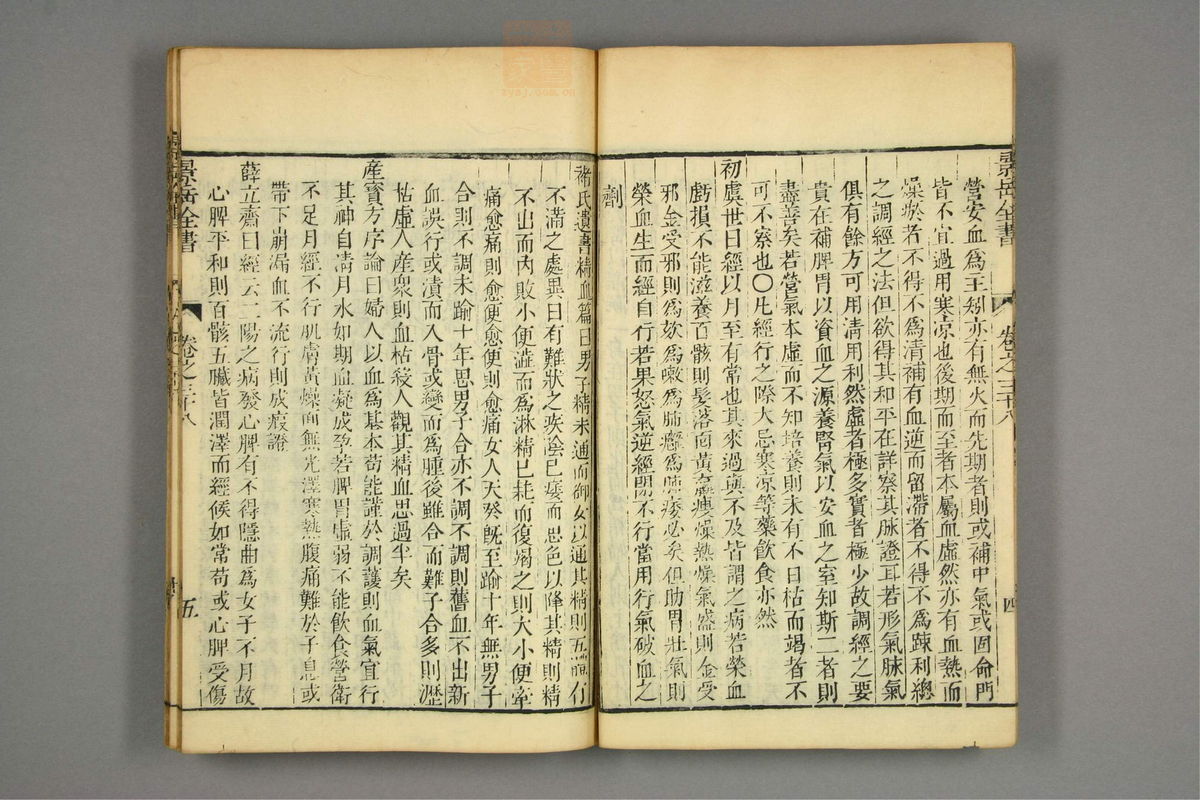 景岳全書
卷之三十八
四
營安血爲主㓜亦有無火而先期者則或補中氣或固命門
皆不宜過用寒凉也後期而至者本屬血虛然亦有血熱而
燥瘀者不得不爲清補有血逆而留滯者不得不爲踈利總
之調經之法但欲得其和平在詳察其脉證耳若形氣脉氣
俱有餘方可用清用利然虛者極多實者極少故調經之要
貴在補脾胃以資血之源養腎氣以安血之室知斯二者則
盡善矣若營氣本虛而不知培養則未有不日枯而竭者不
可不察也〇凡經行之際大忌寒凉等藥飲食亦然
初虞世曰經以月至有常也其來過與不及皆謂之病若榮血
虧損不能滋養百骸則髮落面黃羸瘦燥熱燥氣盛則金受
邪金受邪則爲欬爲嗽爲肺癰爲肺痿必矣但助胃壯氣則
榮血生而經自行若果怒氣逆經閉不行當用行氣破血之
劑
褚氏遺書精血篇曰男子精未通而御女以通其精則五體有
不滿之處異日有難狀之疾隂已痿而思色以降其精則精
不出而內敗小便澁而爲淋精已耗而復竭之則大小便牽
痛愈痛則愈便愈便則愈痛女人天癸旣至踰十年無男子
合則不調未踰十年思男子合亦不調不調則舊血不出新
血誤行或漬而入骨或變而爲腫後雖合而難子合多則瀝
枯虛人產衆則血枯殺人觀其精血思過半矣
產寶方序論曰婦人以血爲基本苟能謹於調護則血氣宜行
其神自清月水如期血凝成孕若脾胃虛弱不能飲食營衛
不足月經不行肌膚黃燥面無光澤寒熱腹痛難於子息或
帶下崩漏血不流行則成瘕證
薛立齋曰經云二陽之病發心脾有不得隱曲爲女子不月故
心脾平和則百骸五臟皆潤澤而經候如常苟或心脾受傷
景岳全書
卷之三十八
五